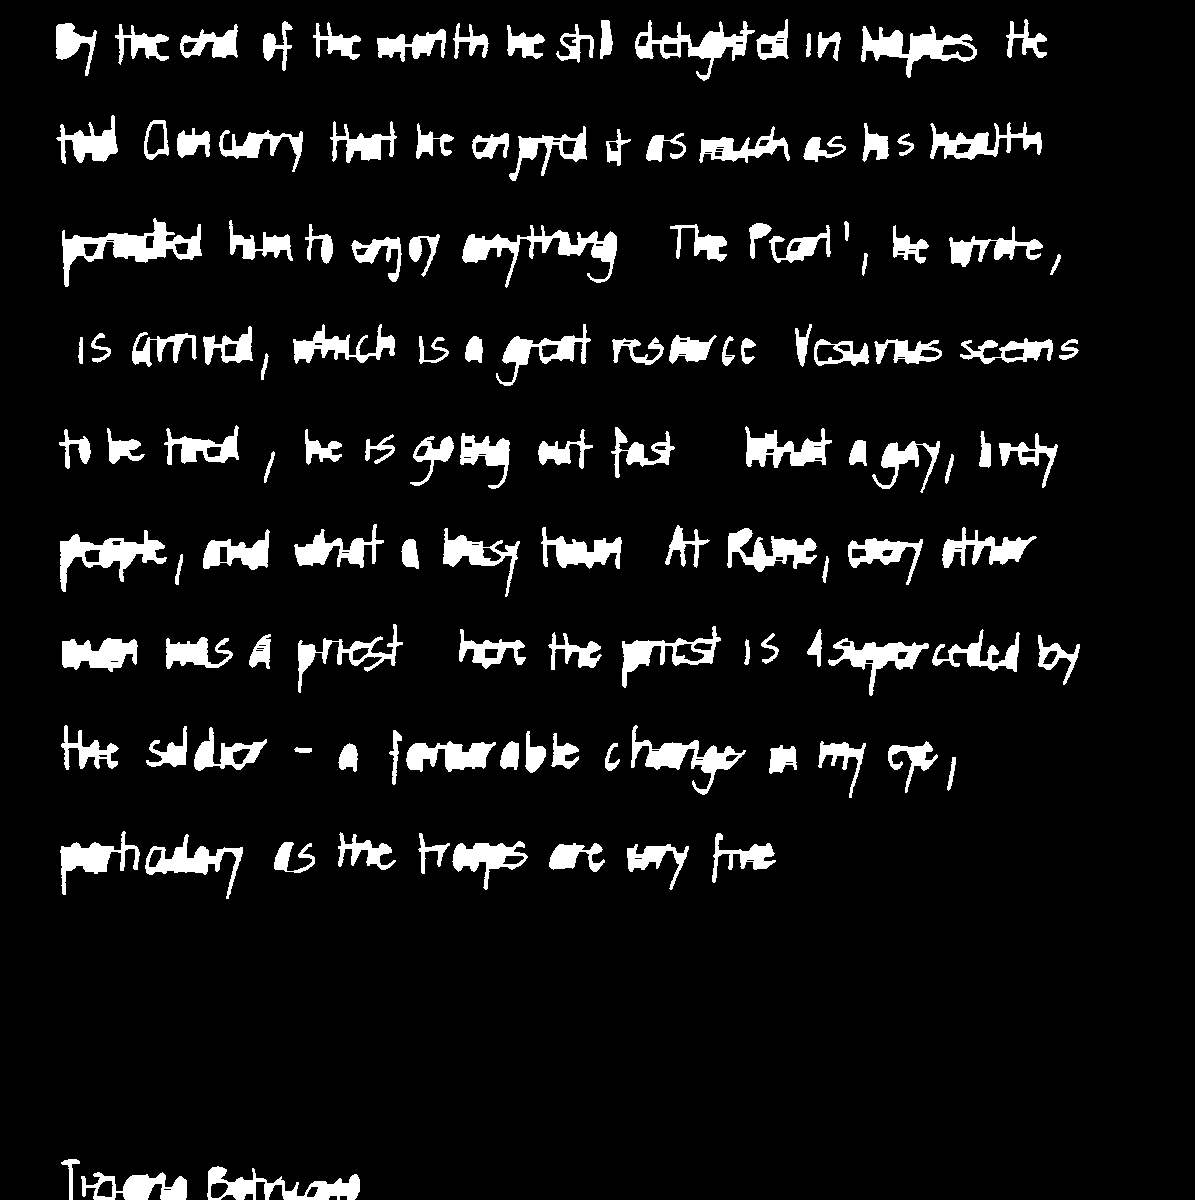 By the end of the month he still delighted in Naples He
told Duncurry that he enjoyed it as much as his health
permitted him to enjoy anything The Pearl', he wrote,
is arrived, which is a great resource Vesuvius seems
to be tired, he is going out fast What a gay, lively
people, and what a busy town At Rome, every other
man was a priest here the priest is superceded by
the soldier - a favourable change in my eye,
particularly as the troops are very fine